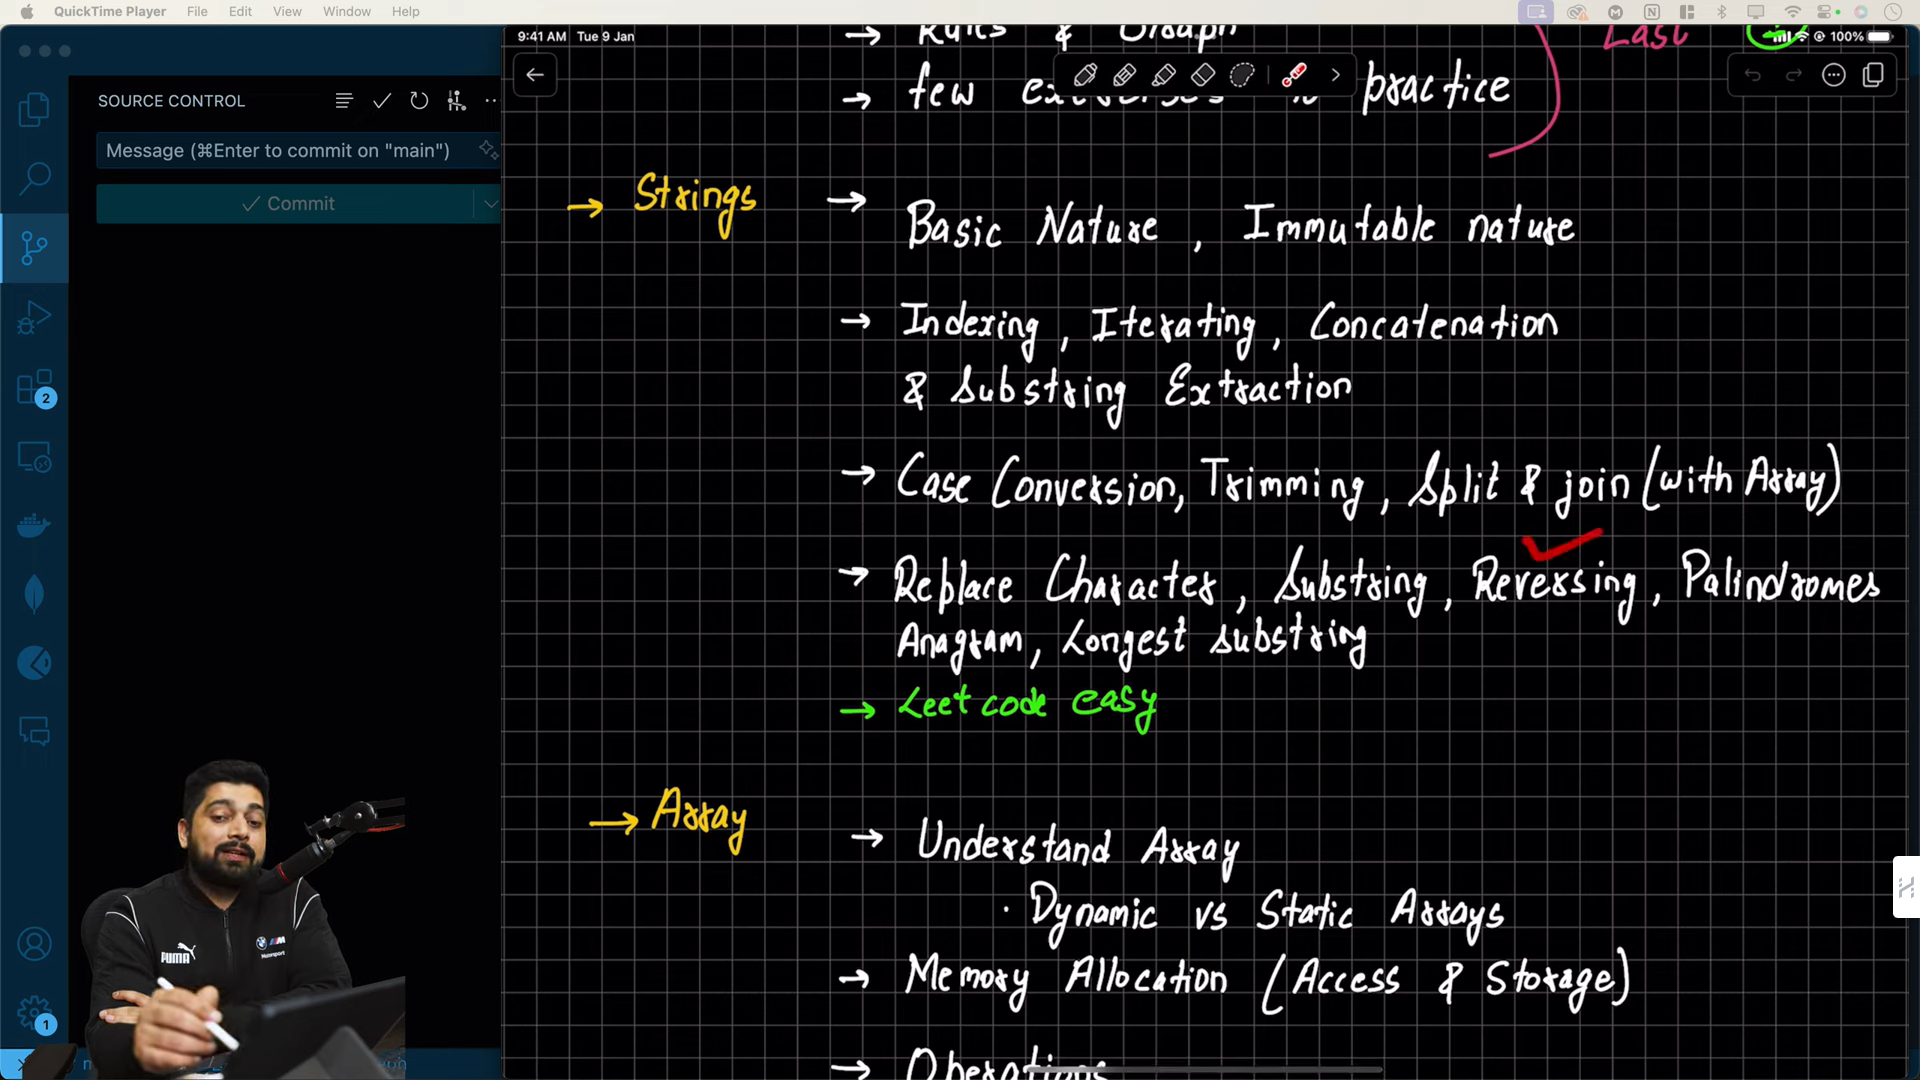 QuickTime Player File Edit View Window Help
9:41 AM Tue 9 Jan
100%
SOURCE CONTROL
Message (⌘Enter to commit on "main")
Commit
2
1
PUMA
→ Rules & Graph
Last
→ few practice
→ Strings → Basic Nature, Immutable nature
→ Indexing, Iterating, Concatenation
& Substring Extraction
→ Case Conversion, Trimming, Split & join (with Array)
→ Replace Character, Substring, Reversing, Palindromes
Anagram, Longest substring
→ Leet code easy
→ Array → Understand Array
· Dynamic vs Static Arrays
→ Memory Allocation (Access & Storage)
→ Operations